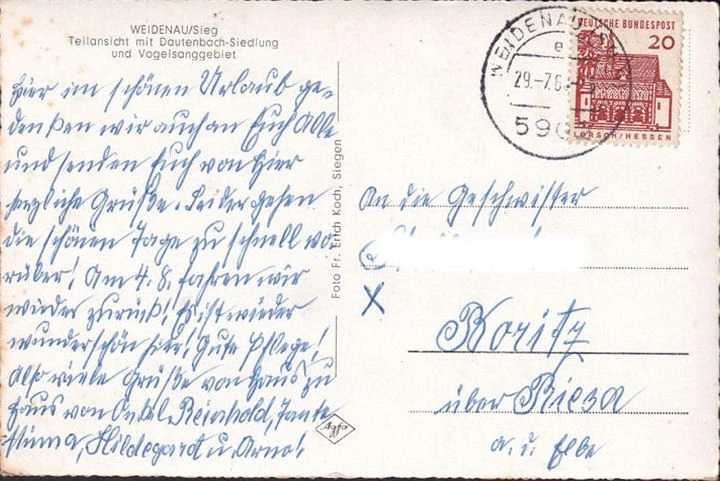 WEIDENAU/Sieg
Teilansicht mit Dautenbach-Siedlung
und Vogelsanggebiet
Hier im schönen Urlaub ge-
denken wir auch an Euch Alle
und senden Euch von hier
herzliche Grüße. Leider gehen
die schönen Tage zu schnell vo-
rüber! Am 4.8. fahren wir
wieder zurück! Es ist wieder
wunderschön hier! Gute Pflege!
Also viele Grüße von Haus zu
Haus von Onkel Reinhold, Tante
Minna, Hildegard u. Arno!
Foto Fr. Erich Koch, Siegen
Agfa
WEIDENAU
e
29.-7.6
590
DEUTSCHE BUNDESPOST
20
LORSCH/HESSEN
An die Geschwister
X
Boritz
über Riesa
a. d. Elbe